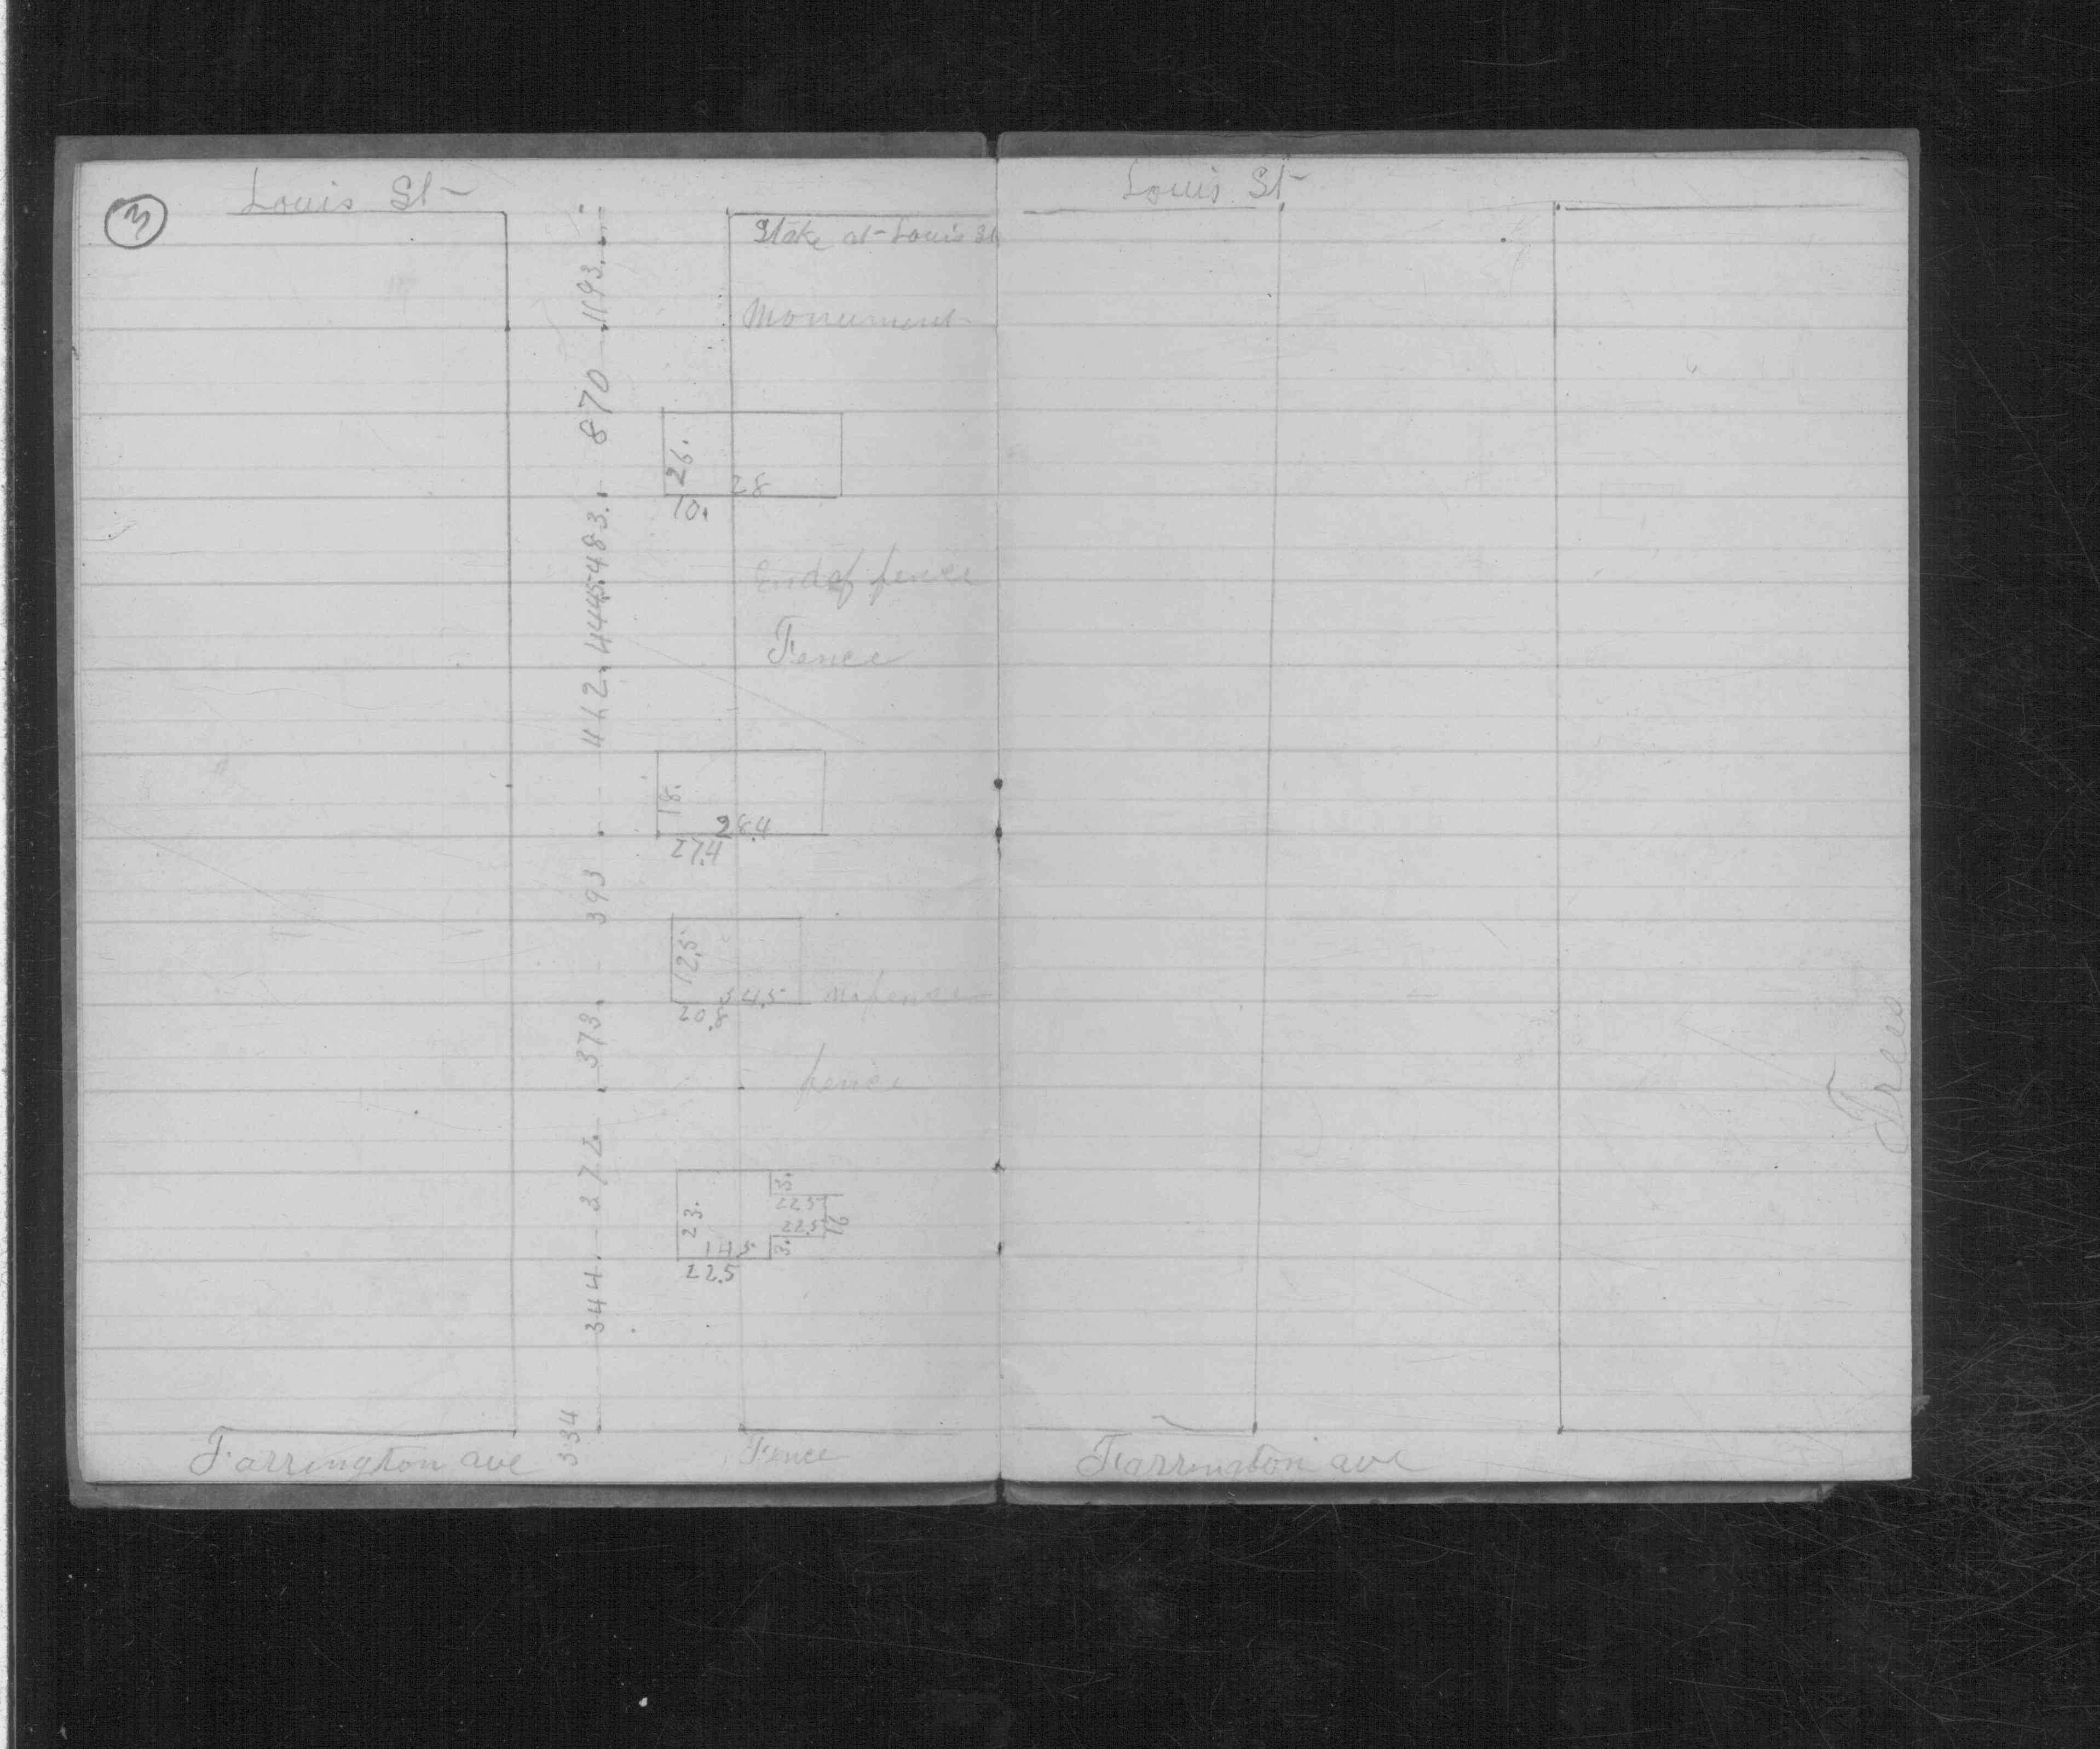 3
Louis St
Louis St
Stake at Louis St
1193.
Monument
870
26.
28
10.
483.
445.
End of fence
444
Fence
442.
18.
28.4
27.4
393
12.5
34.5
no fence
20.8
373.
fence
Trees
372
3.
22.5
23.
22.5
16
14.5
3.
22.5
344.
334
Farrington ave
Fence
Farrington ave